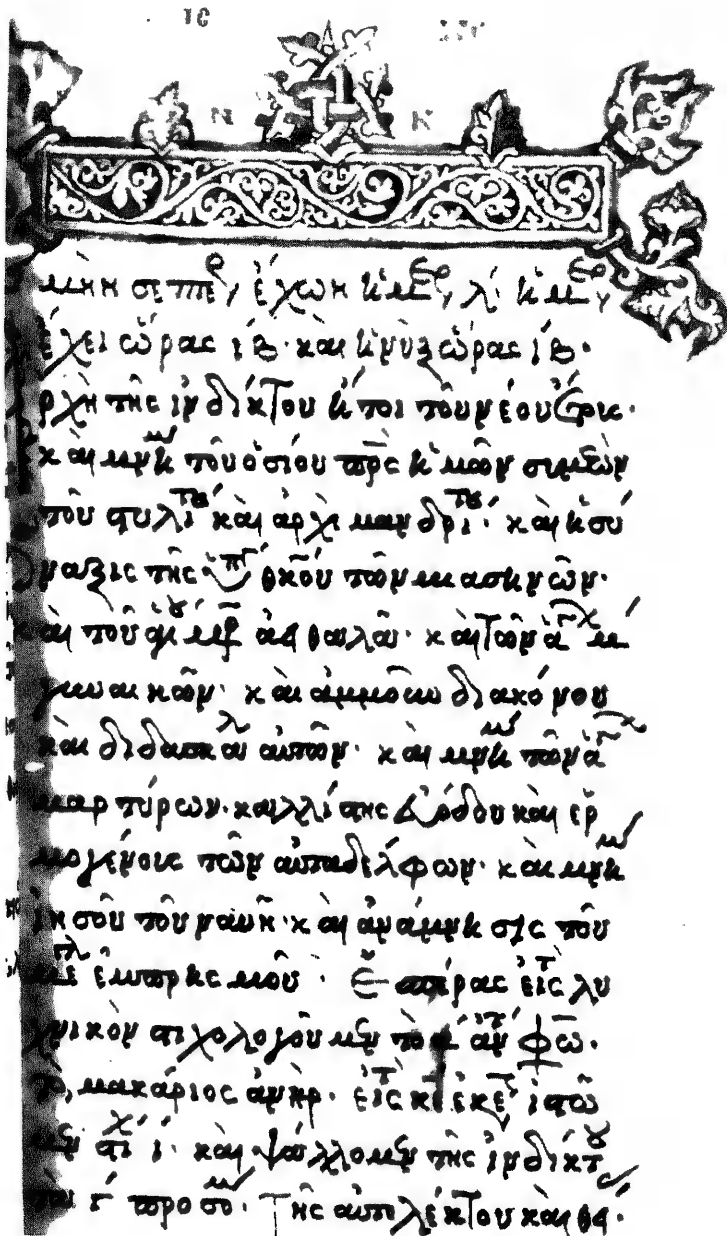 ΙC
Ν Κ
μὴν σεπτε, ἔχων ἡμερ, λ· ἡ ἡμερ,
ἔχει ὥρας ιβ· καὶ ἡ νὺξ ὥρας ιβ·
ἀρχὴ τῆς ἰνδίκτου ἤτοι τοῦ νέου
καὶ μνημ τοῦ ὁσίου πρς ἡμῶν συμεὼν
τοῦ στυλίτου καὶ ἀρχιμανδρίτου· καὶ ἡ σύ
ναξις τῆς ὑπ θκου τῶν μιασηνῶν·
καὶ τοῦ ἁγίου μρ ἀειθαλᾶ· καὶ τῶν ἁγ μ
γυναικῶν· καὶ ἀμμοῦν διακόνου
καὶ διδασκαλ αὐτῶν· καὶ μνημ τῶν ἁγ
μαρτύρων· καλλίστης εὐόδου καὶ ἑρ
μογένους τῶν αὐταδέλφων· καὶ μνημ
ἰησοῦ τοῦ ναυῆ· καὶ ἀνάμνησις τοῦ
μεγ ἐμπρησμοῦ· ἑσπέρας εἰς τ λυ
χνικὸν στιχολογοῦμεν τὸ α ἀντφω·
τὸ, μακάριος ἀνήρ· εἰς τ κε ἐκε ἱστῶ
μεν στιχ ι· καὶ ψάλλομεν τῆς ἰνδίκτου
γ προσομ· τῆς ἀπολέκτου καὶ